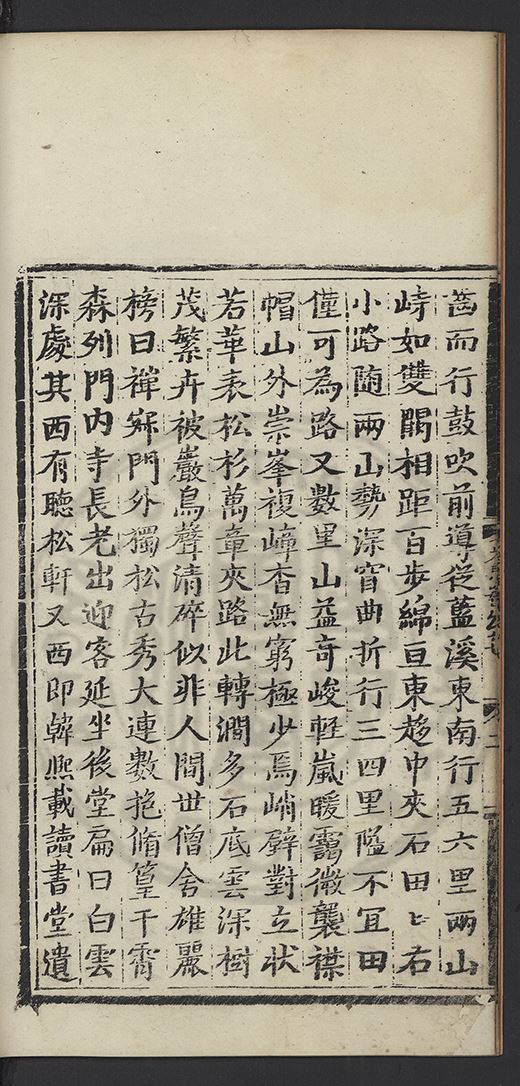 萵而行鼓吹前導從藍溪東南行五六里兩山
峙如雙闕相距百步綿亘東趍中夾石田匕右
小路隨兩山勢深窅曲折行三四里隘不冝田
僅可為路又數里山益奇峻輕嵐暖靄微襲襟
帽山外崇峯複嶂杳無窮極少焉峭壁對立狀
若華表松杉萬章夾路此轉澗多石底雲深樹
茂繁卉被巖鳥聲清碎似非人間世僧舍雄麗
榜曰禪𡧯門外獨松古秀大連數抱脩篁干霄
森列門內寺長老出迎客延坐後堂扁曰白雲
深處其西有聽松軒又西即韓熈載讀書堂遺